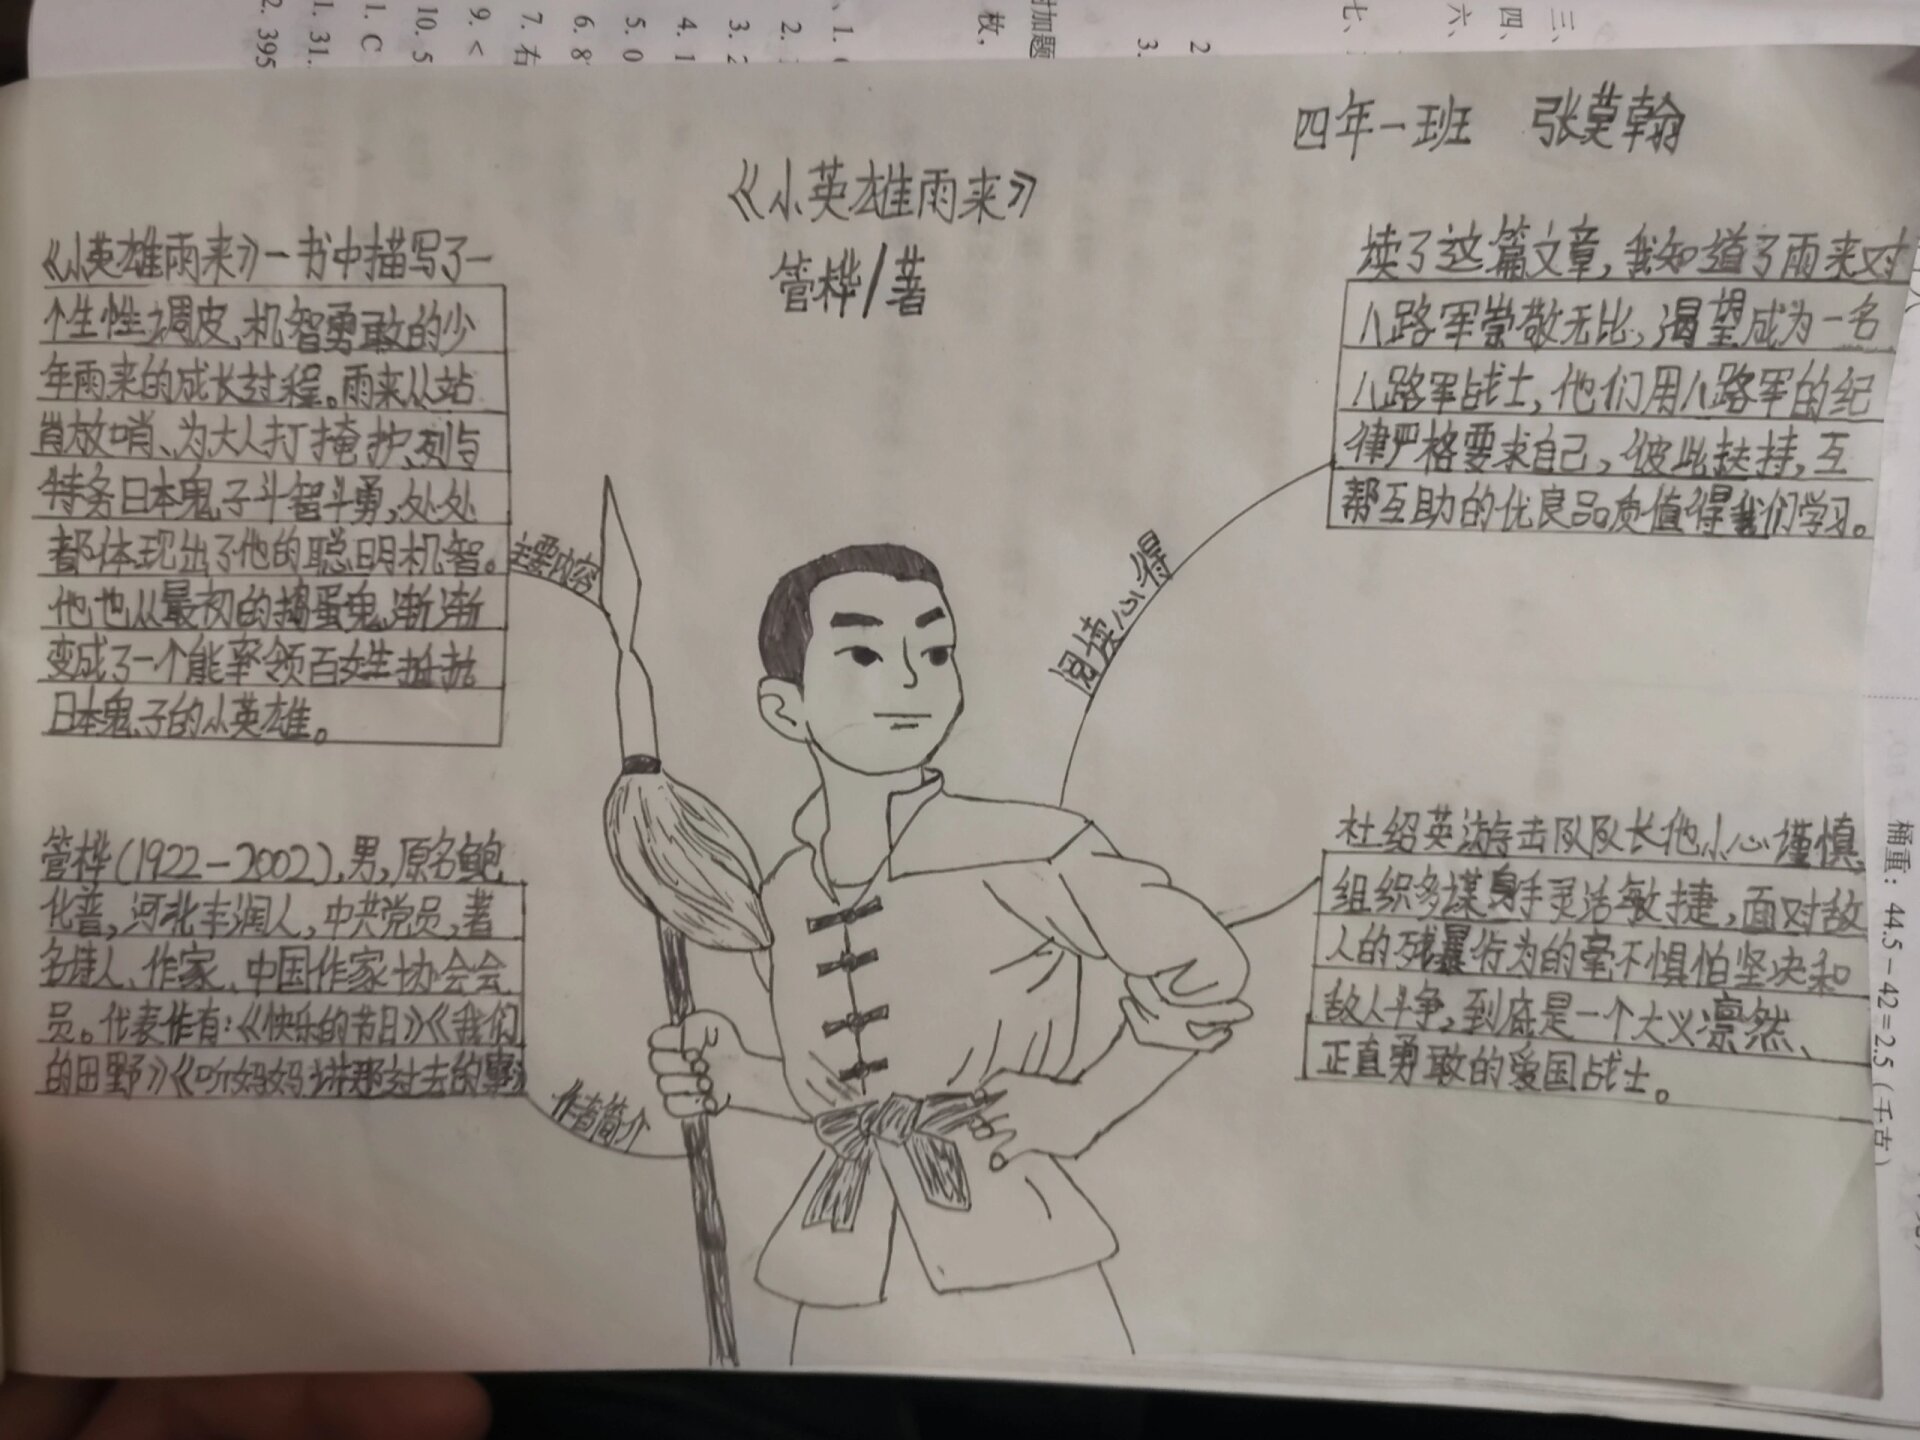 四年一班 张莫翰
《小英雄雨来》
管桦/著
《小英雄雨来》一书中描写了一
个生性调皮、机智勇敢的少
年雨来的成长过程。雨来从站
肖放哨、为大人打掩护、到与
特务日本鬼子斗智斗勇,处处
都体现出了他的聪明机智。
他也从最初的捣蛋鬼渐渐
变成了一个能率领百姓抵抗
日本鬼子的小英雄。
主要内容
管桦(1922-2002),男,原名鲍
化普,河北丰润人,中共党员,著
名诗人、作家、中国作家协会会
员。代表作有:《快乐的节日》《我们
的田野》《听妈妈讲那过去的事
作者简介
读了这篇文章,我知道了雨来对
八路军崇敬无比,渴望成为一名
八路军战士,他们用八路军的纪
律严格要求自己,彼此扶持,互
帮互助的优良品质值得我们学习。
阅读心得
杜绍英游击队队长他小心谨慎
组织多谋身手灵活敏捷,面对敌
人的残暴行为的毫不惧怕坚决和
敌人斗争,到底是一个大义凛然、
正直勇敢的爱国战士。
三、
四、
六、
七、
附加题
枚,
2. 395
1. 31.
1. C
10. 5
9. <
7. 右
6. 8
5. 0
4. 1
3. 2
2.
1.
3.
2
桶重:44.5-42=2.5(千克)